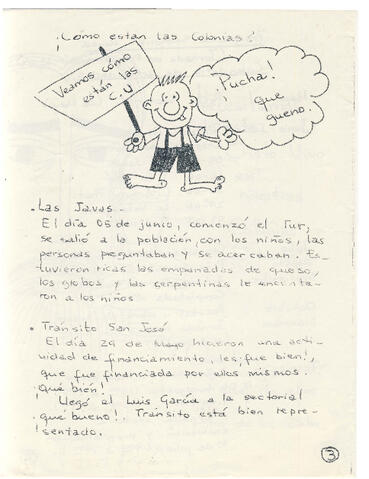 ¡Cómo estan las Colonias!
Veamos cómo
están las
C.U
¡Pucha!
que
gueno.
. Las Javas -
El día 05 de junio, comenzó el Tur,
se salió a la población, con los niños, las
personas preguntaban y se acercaban. Es-
tuvieron ricas las empanadas de queso,
los globos y las serpentinas le encanta-
ron a los niños
. Tránsito San José
El día 29 de Mayo hicieron una acti-
vidad de financiamiento, les, fue bien!,
que fue financiada por ellos mismos.
¡qué bien!
¡Llegó el Luis García a la sectorial
¡qué bueno!. Tránsito está bien repre-
sentado.
3